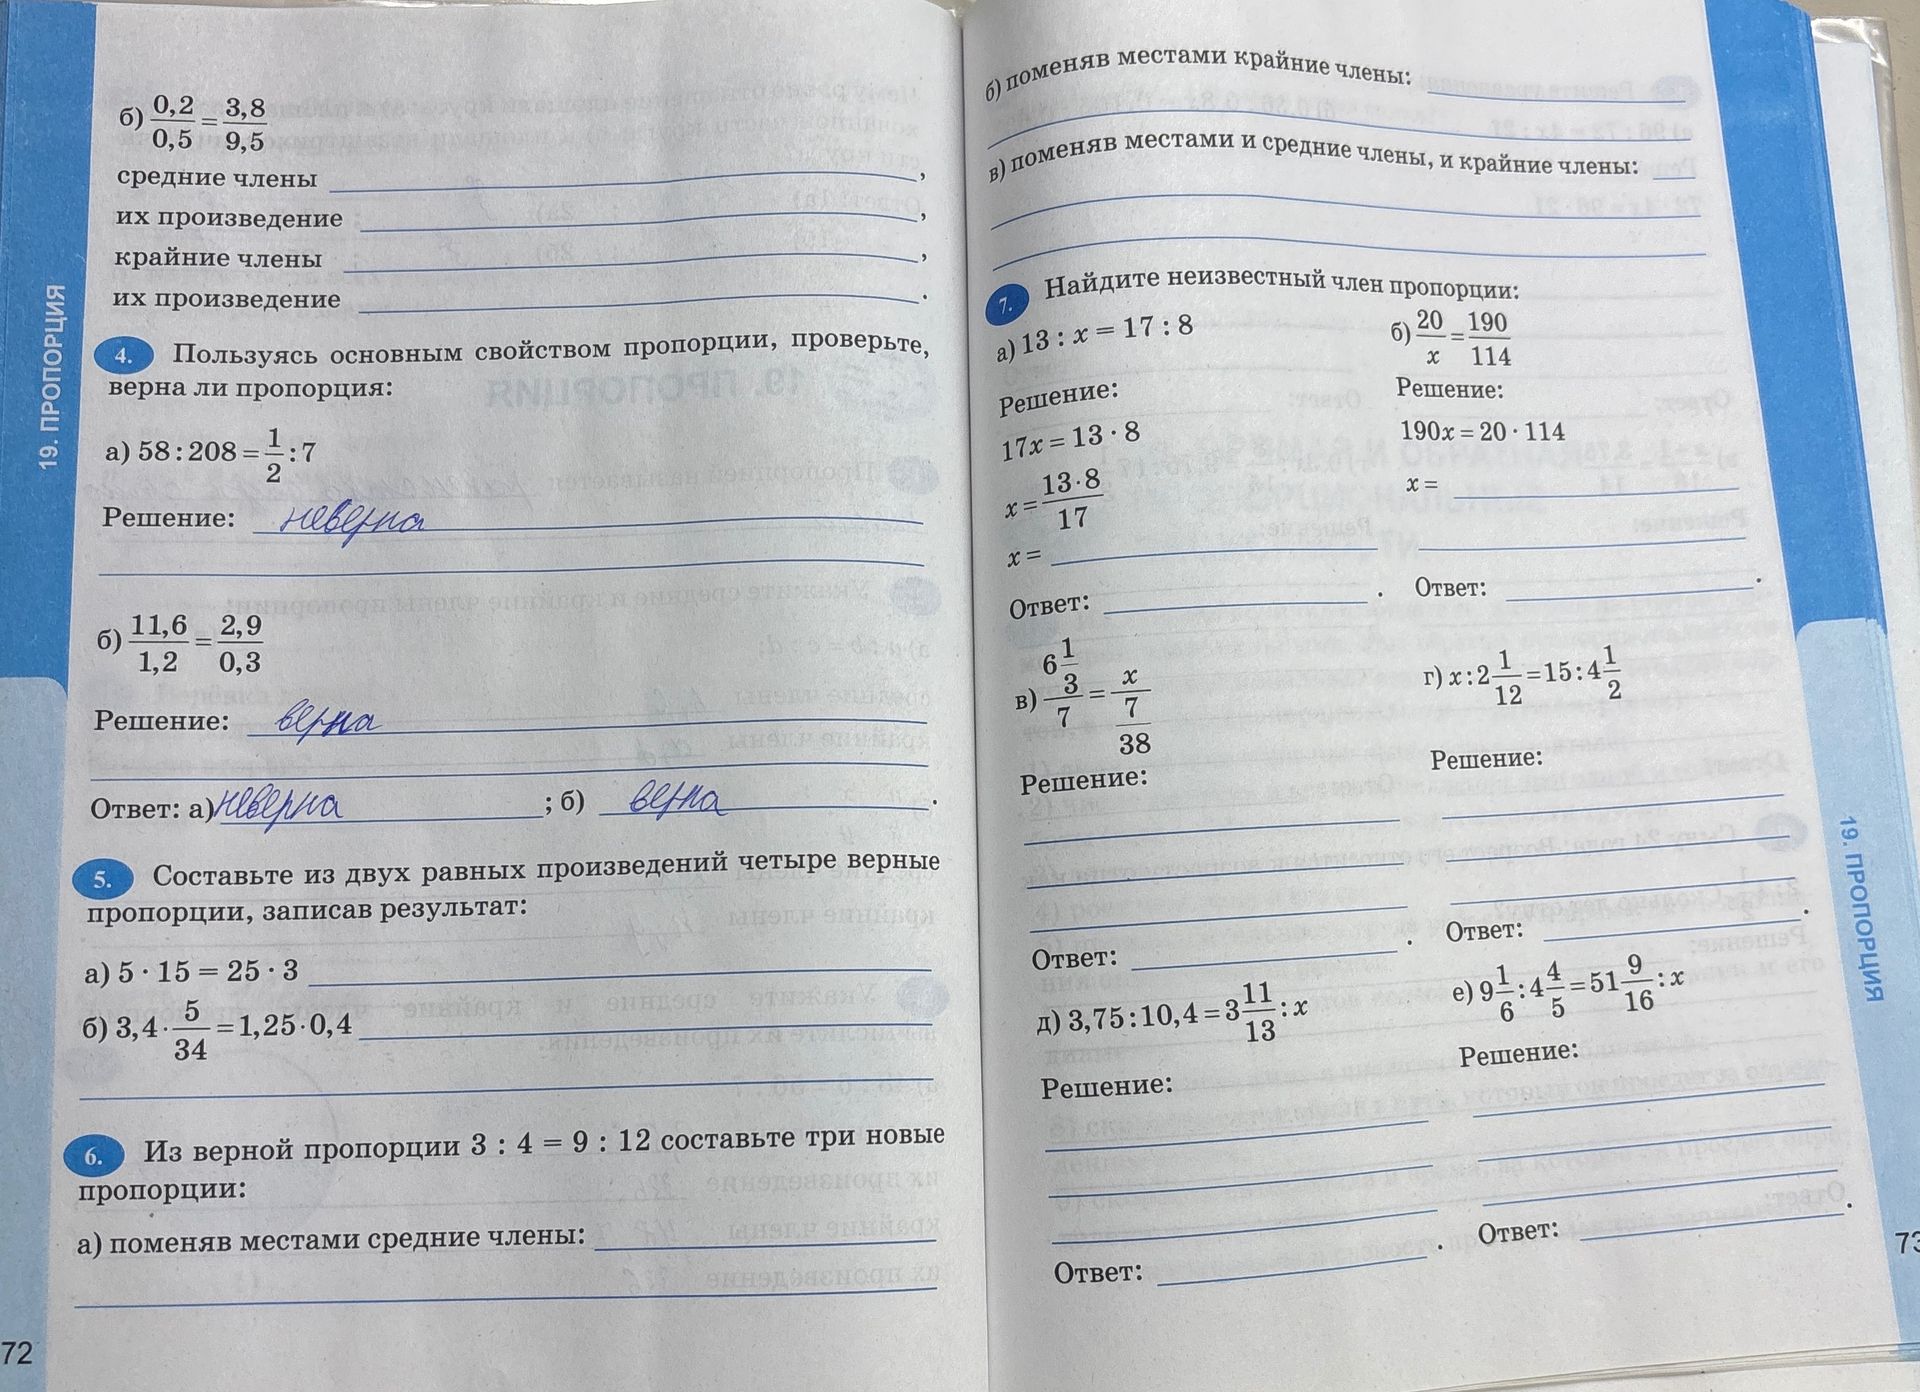 19. ПРОПОРЦИЯ
б) 0,2/0,5 = 3,8/9,5
средние члены ,
их произведение ,
крайние члены ,
их произведение .
4. Пользуясь основным свойством пропорции, проверьте,
верна ли пропорция:
а) 58 : 208 = 1/2 : 7
Решение: неверна
б) 11,6/1,2 = 2,9/0,3
Решение: верна
Ответ: а) неверна ; б) верна .
5. Составьте из двух равных произведений четыре верные
пропорции, записав результат:
а) 5 · 15 = 25 · 3
б) 3,4 · 5/34 = 1,25 · 0,4
6. Из верной пропорции 3 : 4 = 9 : 12 составьте три новые
пропорции:
а) поменяв местами средние члены:
72
б) поменяв местами крайние члены:
в) поменяв местами и средние члены, и крайние члены:
7. Найдите неизвестный член пропорции:
а) 13 : x = 17 : 8
Решение:
17x = 13 · 8
x = 13·8/17
x =
Ответ: .
б) 20/x = 190/114
Решение:
190x = 20 · 114
x =
Ответ: .
в) 6 1/3 / 7 = x / 7/38
Решение:
Ответ: .
г) x : 2 1/12 = 15 : 4 1/2
Решение:
Ответ: .
д) 3,75 : 10,4 = 3 11/13 : x
Решение:
Ответ: .
е) 9 1/6 : 4 4/5 = 51 9/16 : x
Решение:
Ответ: .
19. ПРОПОРЦИЯ
73